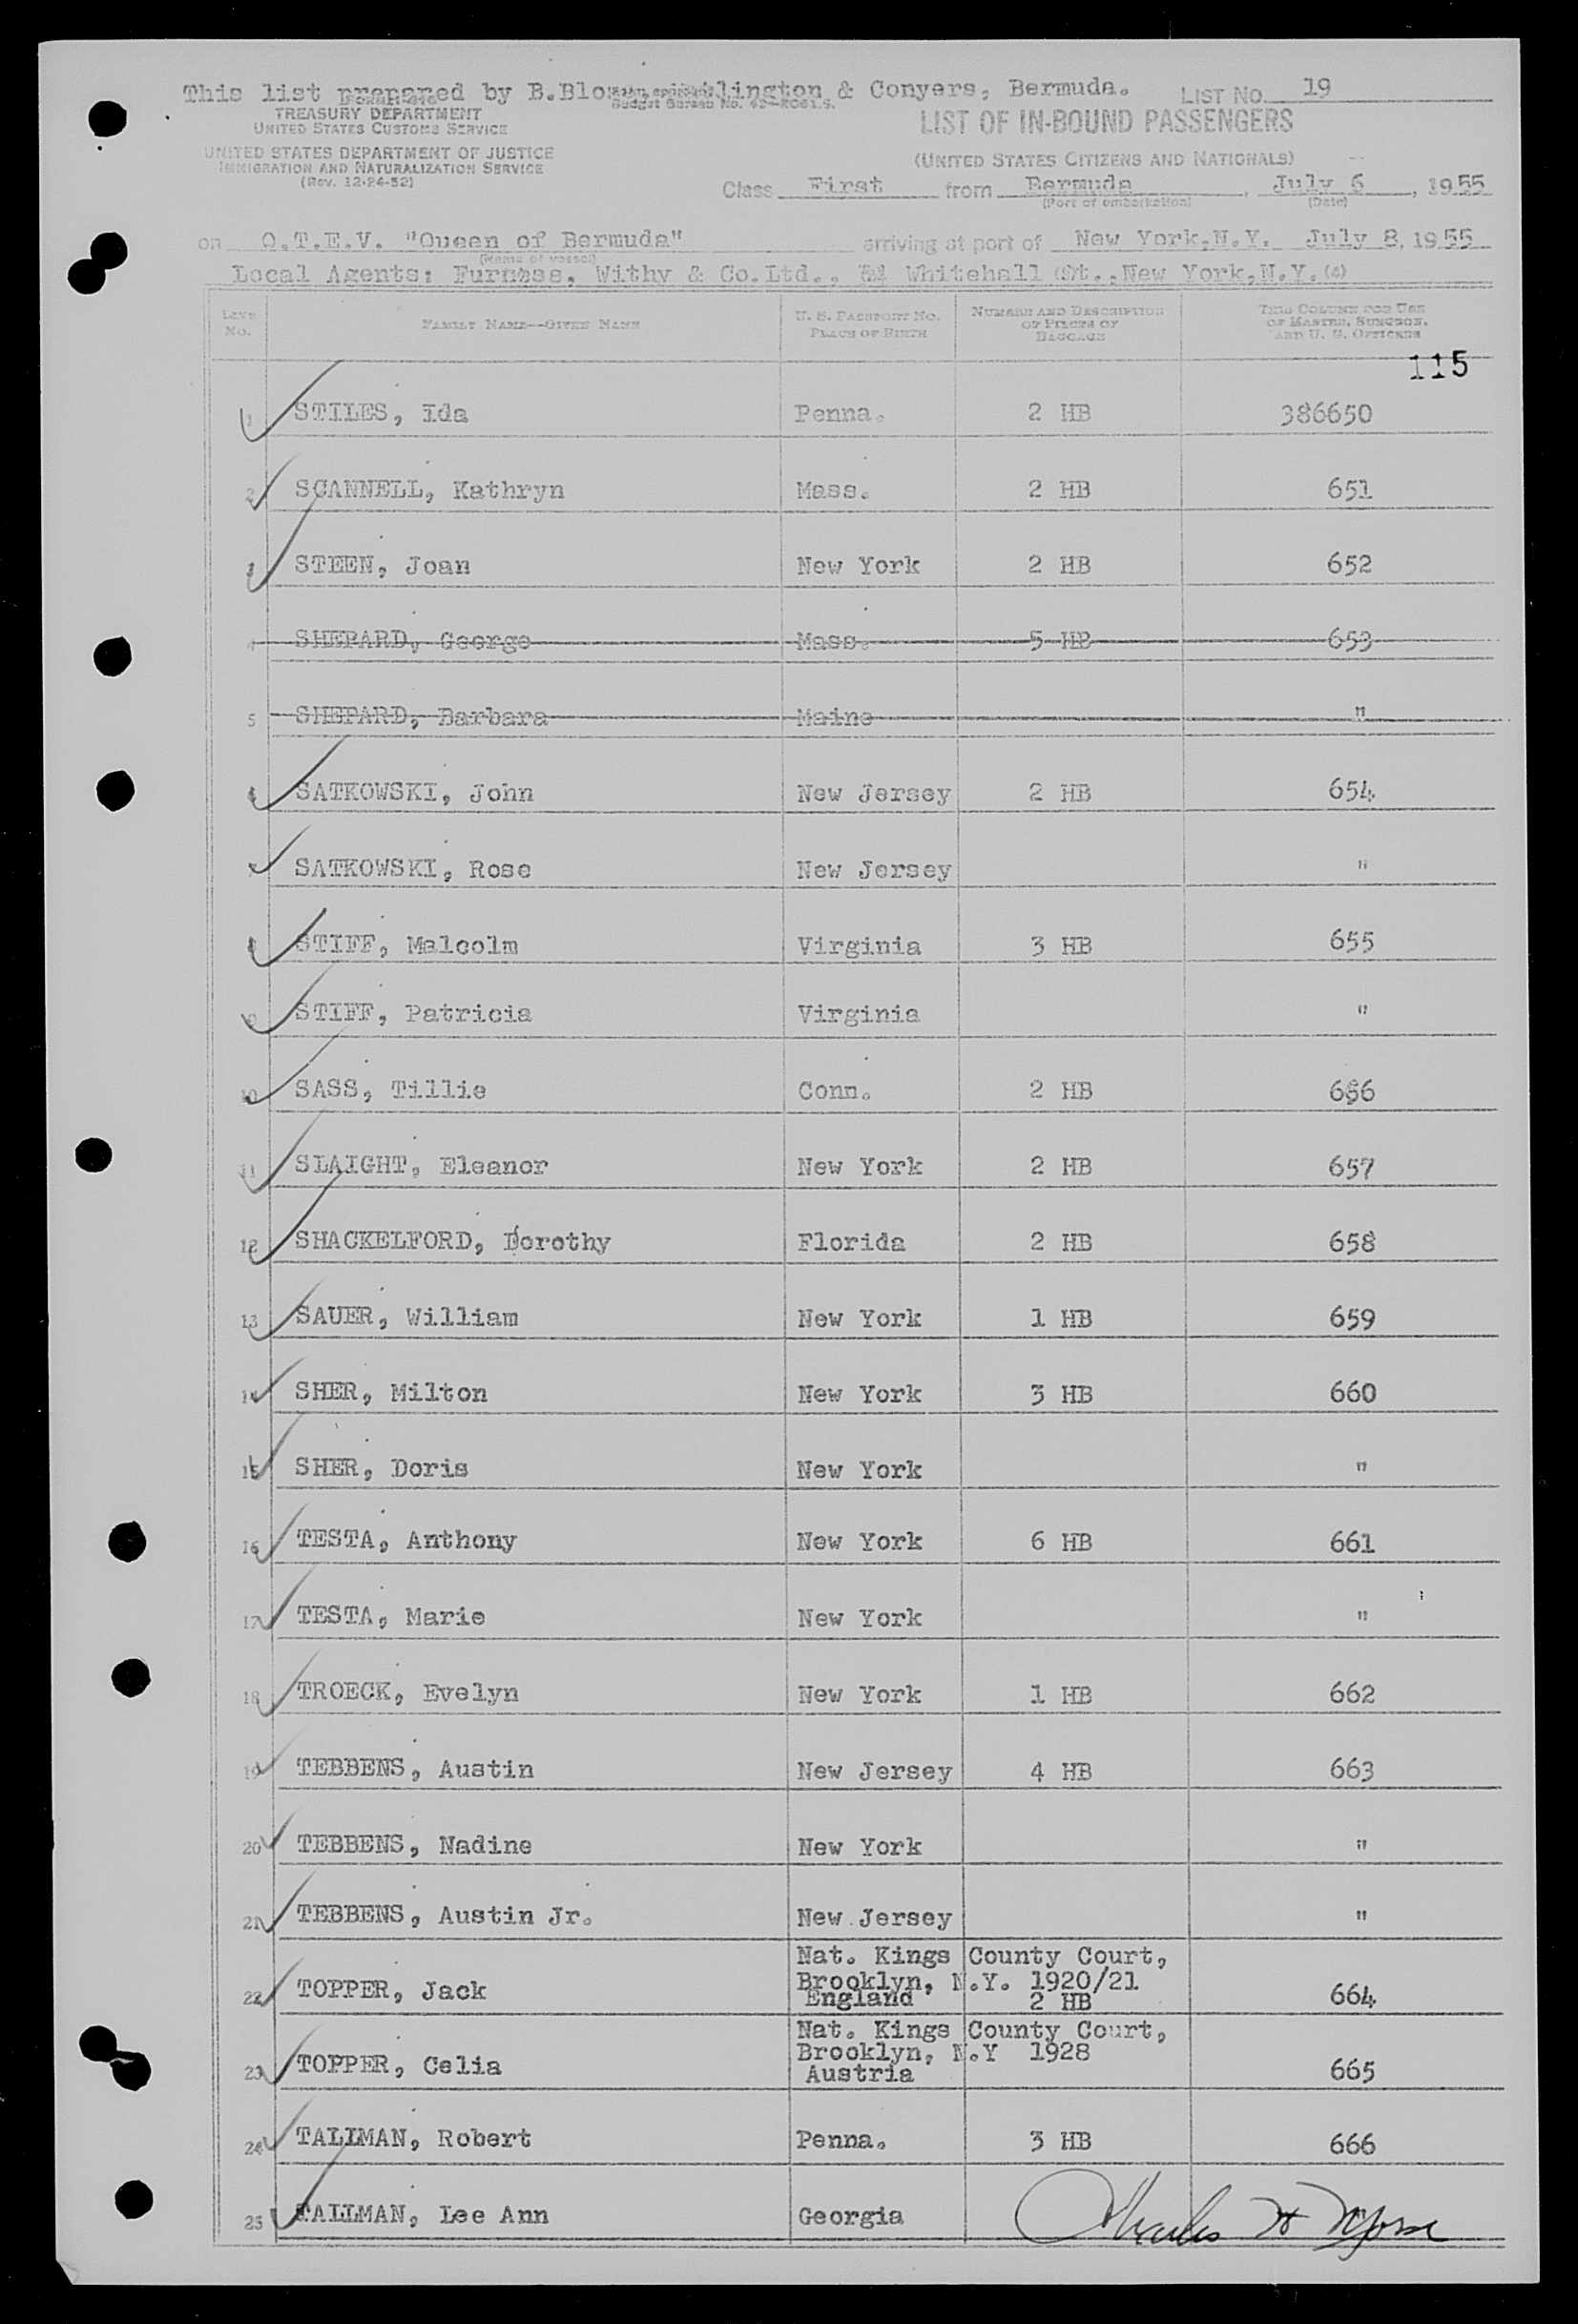 This list prepared by B.Blo lington & Conyers, Bermuda.
LIST No. 19
TREASURY DEPARTMENT
UNITED STATES CUSTOMS SERVICE
LIST OF IN-BOUND PASSENGERS
UNITED STATES DEPARTMENT OF JUSTICE
IMMIGRATION AND NATURALIZATION SERVICE
(Rev. 12-24-52)
(UNITED STATES CITIZENS AND NATIONALS)
Class First from Bermuda, July 6, 1955
(Port of embarkation) (Date)
on Q.T.E.V. "Queen of Bermuda" arriving at port of New York,N.Y. July 8, 1955
(Name of vessel)
Local Agents: Furness, Withy & Co.Ltd., Whitehall St.,New York,N.Y.(4)
LINE No. FAMILY NAME—GIVEN NAME U. S. PASSPORT NO. PLACE OF BIRTH NUMBER AND DESCRIPTION OF PIECES OF BAGGAGE THIS COLUMN FOR USE OF MASTER, SURGEON, AND U. S. OFFICERS
115
1 STILES, Ida Penna. 2 HB 386650
2 SCANNELL, Kathryn Mass. 2 HB 651
3 STEEN, Joan New York 2 HB 652
4 SHEPARD, George Mass. 5 HB 653
5 SHEPARD, Barbara Maine "
6 SATKOWSKI, John New Jersey 2 HB 654
7 SATKOWSKI, Rose New Jersey "
8 STIFF, Malcolm Virginia 3 HB 655
9 STIFF, Patricia Virginia "
10 SASS, Tillie Conn. 2 HB 656
11 SLAIGHT, Eleanor New York 2 HB 657
12 SHACKELFORD, Dorothy Florida 2 HB 658
13 SAUER, William New York 1 HB 659
14 SHER, Milton New York 3 HB 660
15 SHER, Doris New York "
16 TESTA, Anthony New York 6 HB 661
17 TESTA, Marie New York "
18 TROECK, Evelyn New York 1 HB 662
19 TEBBENS, Austin New Jersey 4 HB 663
20 TEBBENS, Nadine New York "
21 TEBBENS, Austin Jr. New Jersey "
Nat. Kings County Court,
Brooklyn, N.Y. 1920/21
22 TOPPER, Jack England 2 HB 664
Nat. Kings County Court,
Brooklyn, N.Y 1928
23 TOPPER, Celia Austria 665
24 TALLMAN, Robert Penna. 3 HB 666
25 TALLMAN, Lee Ann Georgia
Charles H